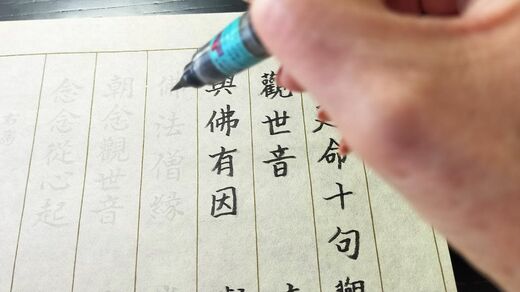 命十句觀
觀世音
與佛有因
佛法僧緣
朝念觀世音
念念從心起